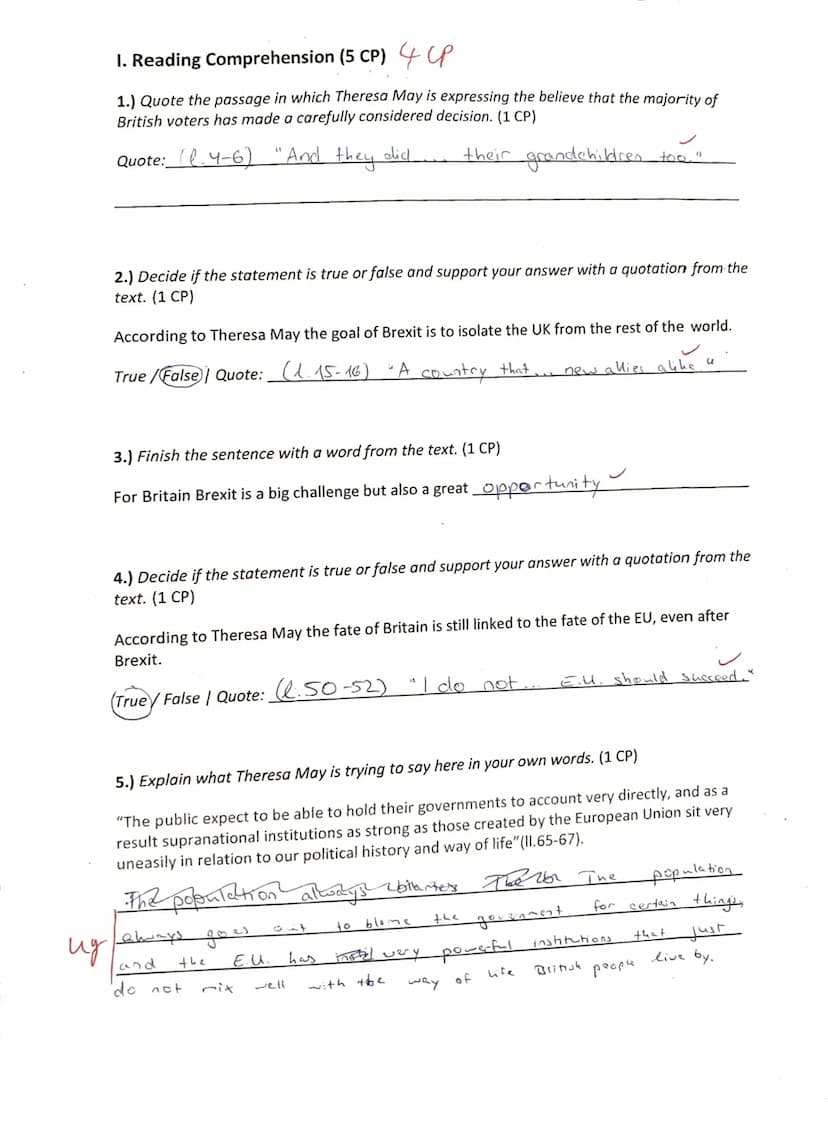 I. Reading Comprehension (5 CP) 4 CP
1.) Quote the passage in which Theresa May is expressing the believe that the majority of
British voters has made a carefully considered decision. (1 CP)
Quote: (l. 4-6) "And they did ... their grandchildren too."
2.) Decide if the statement is true or false and support your answer with a quotation from the
text. (1 CP)
According to Theresa May the goal of Brexit is to isolate the UK from the rest of the world.
True / False | Quote: (l. 15-16) "A country that ... new allies alike"
3.) Finish the sentence with a word from the text. (1 CP)
For Britain Brexit is a big challenge but also a great opportunity
4.) Decide if the statement is true or false and support your answer with a quotation from the
text. (1 CP)
According to Theresa May the fate of Britain is still linked to the fate of the EU, even after
Brexit.
True / False | Quote: (l. 50-52) "I do not ... E.U. should succeed."
5.) Explain what Theresa May is trying to say here in your own words. (1 CP)
"The public expect to be able to hold their governments to account very directly, and as a
result supranational institutions as strong as those created by the European Union sit very
uneasily in relation to our political history and way of life"(ll.65-67).
The population always The The population
always goes out to blame the government for certain things,
ug and the E.U. has very powerful institutions that just
do not mix well with the way of life British people live by.